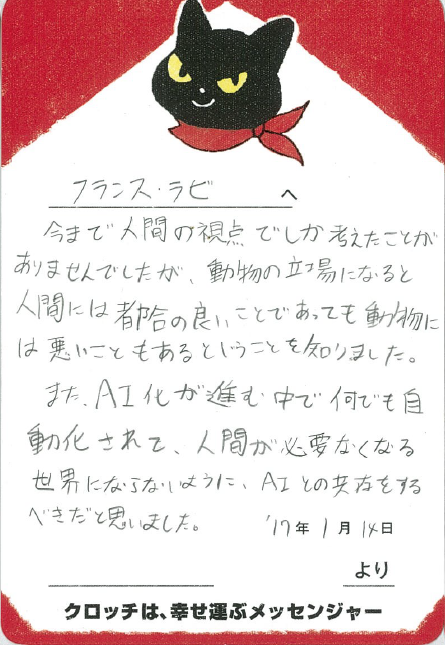 フランス・ラビ へ
今まで人間の視点でしか考えたことが
ありませんでしたが、動物の立場になると
人間には都合の良いことであっても動物に
は悪いこともあるということを知りました。
また、AI化が進む中で何でも自
動化されて、人間が必要なくなる
世界にならないように、AIとの共存をする
べきだと思いました。
'17年1月14日
より
クロッチは、幸せ運ぶメッセンジャー